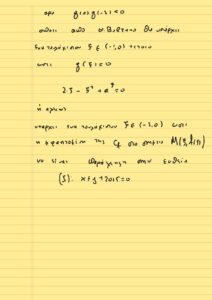 άρα g(0)g(-1)<0
οπότε από Θ. Bolzano θα υπάρχει
ένα τουλάχιστον ξ ∈ (-1,0) τέτοιο
ώστε g(ξ)=0
ή αλλιώς
υπάρχει ένα τουλάχιστον ξ ∈ (-1,0) ώστε
η εφαπτομένη της Cf στο σημείο M(ξ,f(ξ))
να είναι παράλληλη στην ευθεία
(ζ): x+y+2015=0